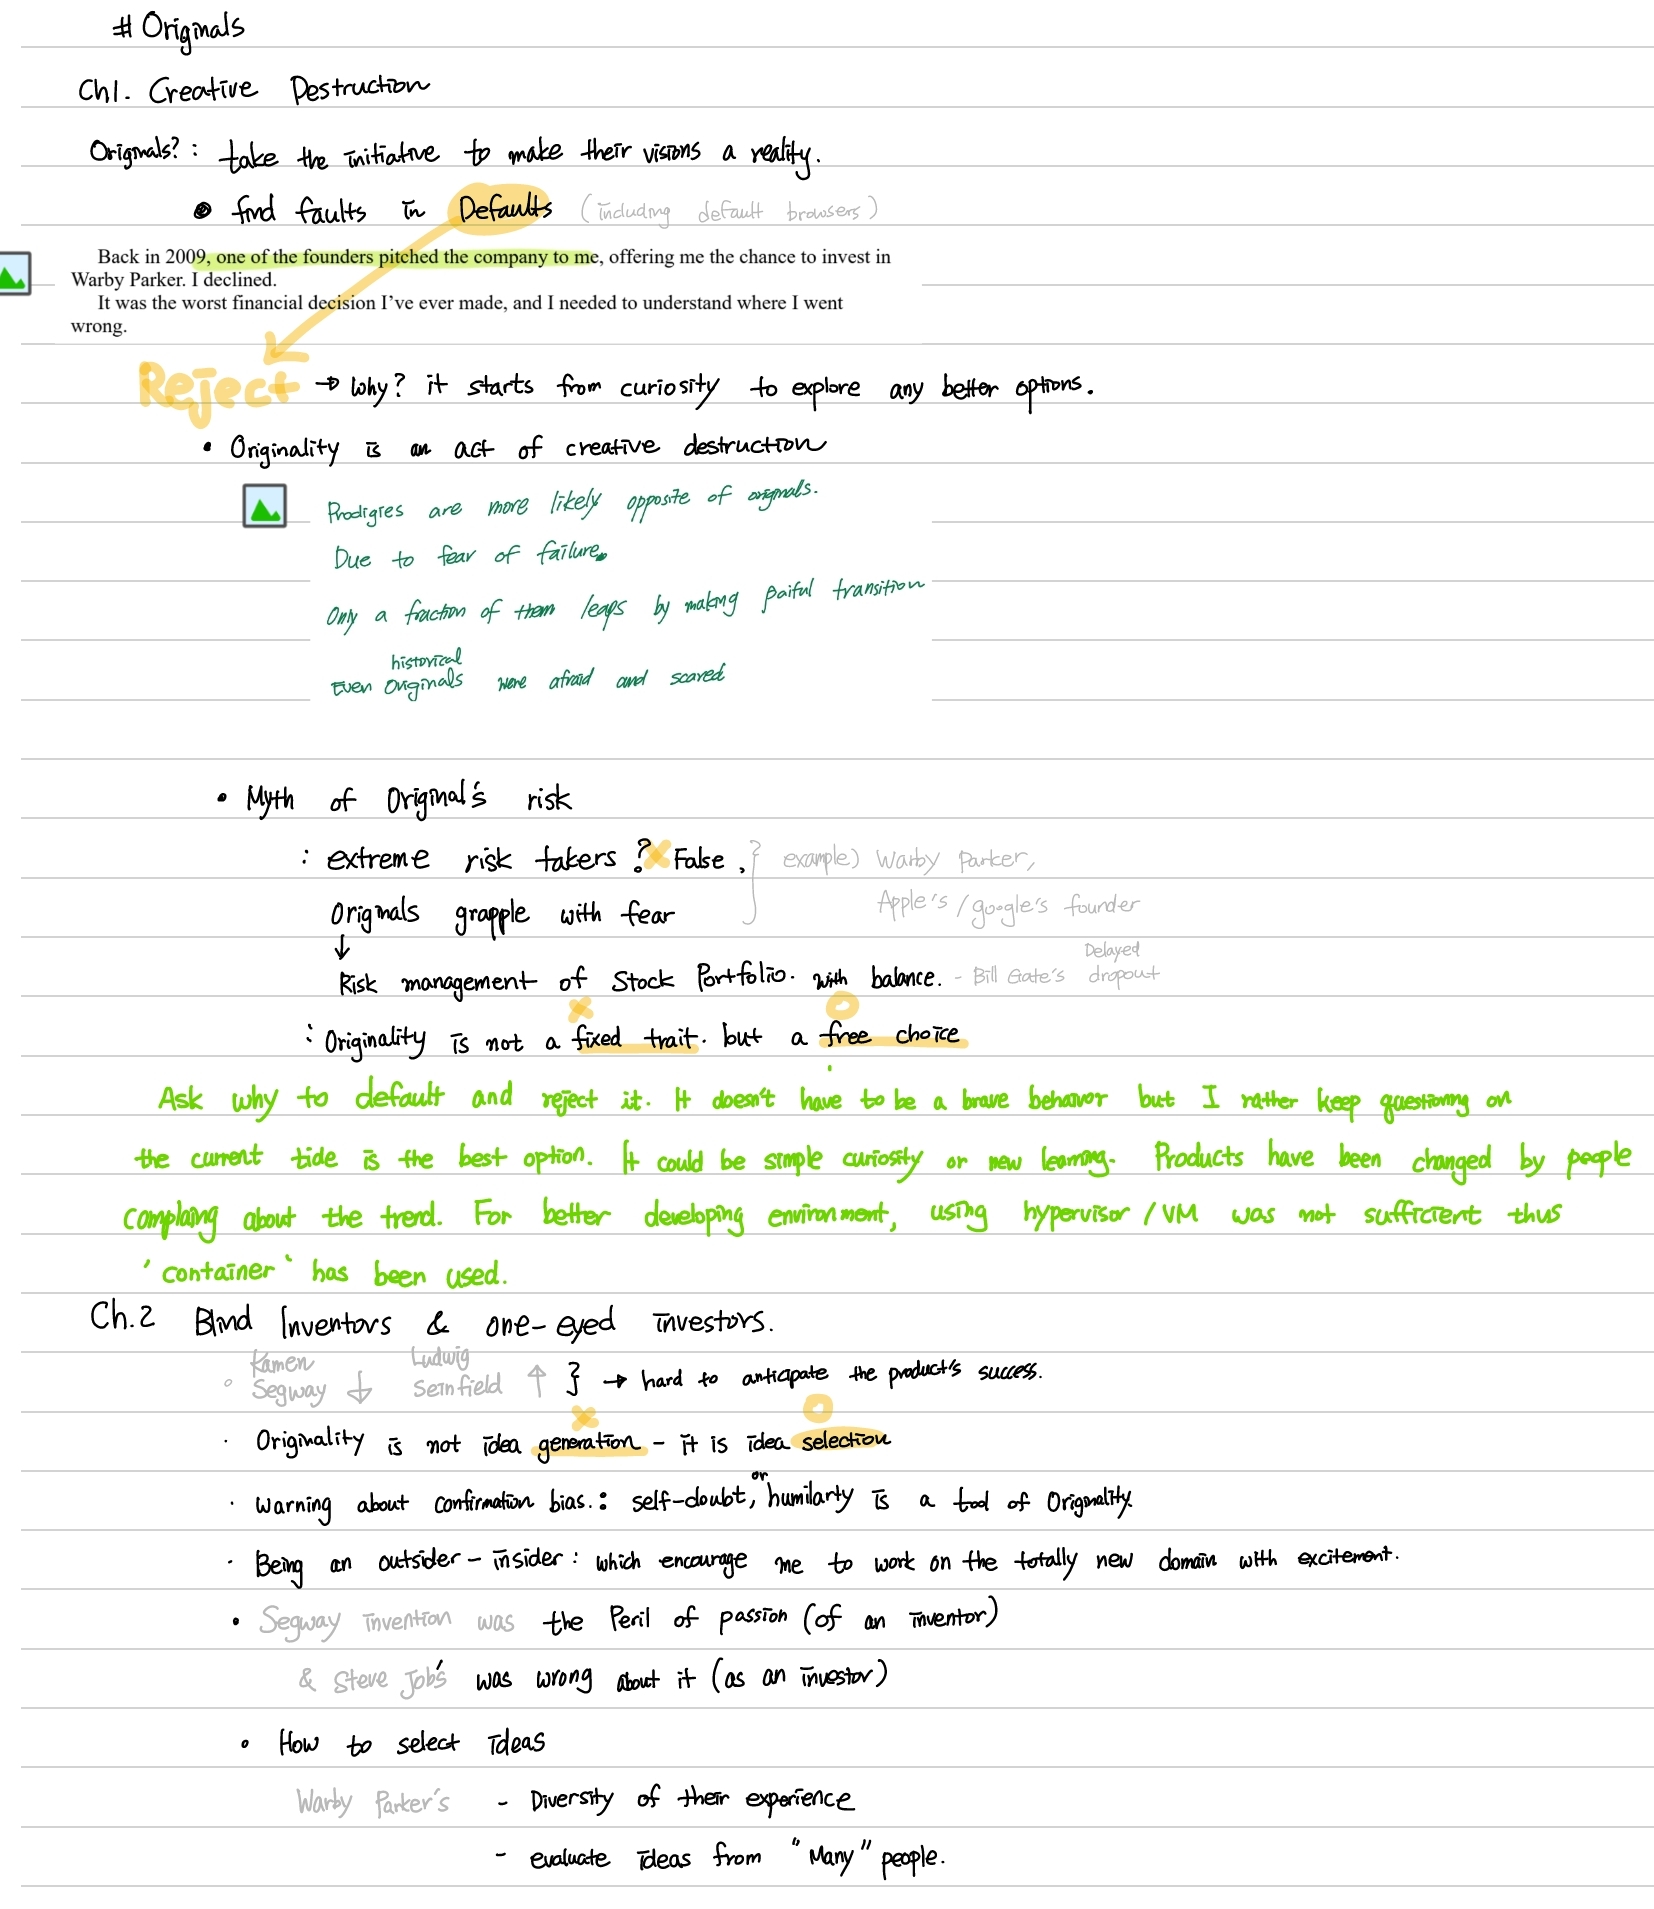 # Originals
Ch1. Creative Destruction
Originals? : take the initiative to make their visions a reality.
• find faults in Defaults (including default browsers)
Back in 2009, one of the founders pitched the company to me, offering me the chance to invest in
Warby Parker. I declined.
It was the worst financial decision I've ever made, and I needed to understand where I went
wrong.
Reject → Why? it starts from curiosity to explore any better options.
• Originality is an act of creative destruction
Prodigies are more likely opposite of originals.
Due to fear of failure.
Only a fraction of them leaps by making paiful transition
historical
Even Originals were afraid and scared
• Myth of Original's risk
: extreme risk takers? X False, } example) Warby Parker,
Originals grapple with fear Apple's / google's founder
↓ Delayed
Risk management of Stock Portfolio. with balance. - Bill Gate's dropout
: Originality is not a fixed trait. but a free choice
Ask why to default and reject it. It doesn't have to be a brave behavior but I rather keep questioning on
the current tide is the best option. It could be simple curiosity or new learning. Products have been changed by people
complaing about the trend. For better developing environment, using hypervisor / VM was not sufficient thus
'container' has been used.
Ch.2 Blind Inventors & one-eyed investors.
Kamen Ludwig
Segway ↓ Seinfield ↑ } → hard to anticapate the product's success.
· Originality is not idea generation - it is idea selection
or
· Warning about confirmation bias. : self-doubt, humilarty is a tool of Originality.
· Being an outsider - insider : which encourage me to work on the totally new domain with excitement.
• Segway invention was the Peril of passion (of an inventor)
& Steve Job's was wrong about it (as an investor)
• How to select ideas
Warby Parker's - Diversity of their experience
- evaluate ideas from "Many" people.